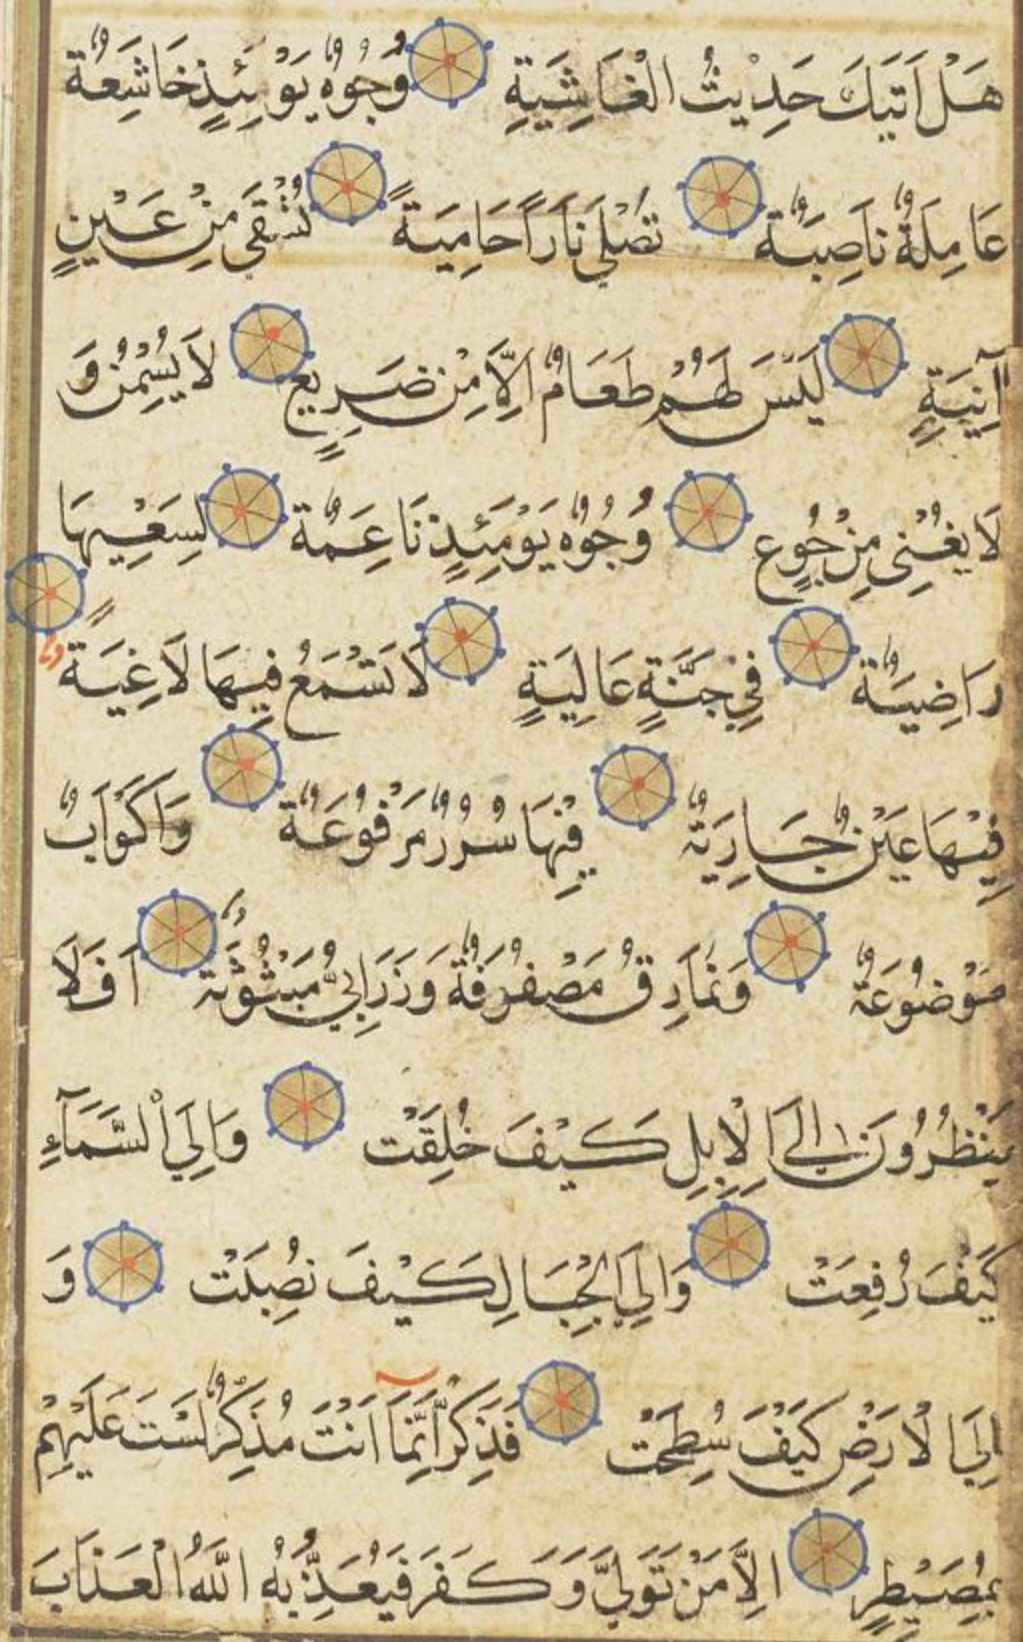 هَلْ اَتَيكَ حَدِيْثُ الْغَاشِيَةِ وُجُوْهٌ يَوْمَئِذٍ خَاشِعَةٌ
عَامِلَةٌ نَاصِبَةٌ تَصْلَى نَارًا حَامِيَةً تُسْقَى مِنْ عَيْنٍ
اٰنِيَةٍ لَيْسَ لَهُمْ طَعَامٌ اِلَّا مِنْ ضَرِيعٍ لَا يُسْمِنُ وَ
لَا يُغْنِى مِنْ جُوعٍ وُجُوْهٌ يَوْمَئِذٍ نَاعِمَةٌ لِسَعْيِهَا
رَاضِيَةٌ فِي جَنَّةٍ عَالِيَةٍ لَا تَسْمَعُ فِيهَا لَاغِيَةً
فِيْهَا عَيْنٌ جَارِيَةٌ فِيْهَا سُرُرٌ مَرْفُوْعَةٌ وَاَكْوَابٌ
مَوْضُوْعَةٌ وَنَمَارِقُ مَصْفُوْفَةٌ وَزَرَابِيُّ مَبْثُوْثَةٌ اَفَلَا
يَنْظُرُوْنَ اِلَى الْاِبِلِ كَيْفَ خُلِقَتْ وَاِلَى السَّمَآءِ
كَيْفَ رُفِعَتْ وَاِلَى الْجِبَالِ كَيْفَ نُصِبَتْ وَ
اِلَى الْاَرْضِ كَيْفَ سُطِحَتْ فَذَكِّرْ اِنَّمَآ اَنْتَ مُذَكِّرٌ لَسْتَ عَلَيْهِمْ
بِمُصَيْطِرٍ اِلَّا مَنْ تَوَلَّى وَكَفَرَ فَيُعَذِّبُهُ اللّٰهُ الْعَذَابَ